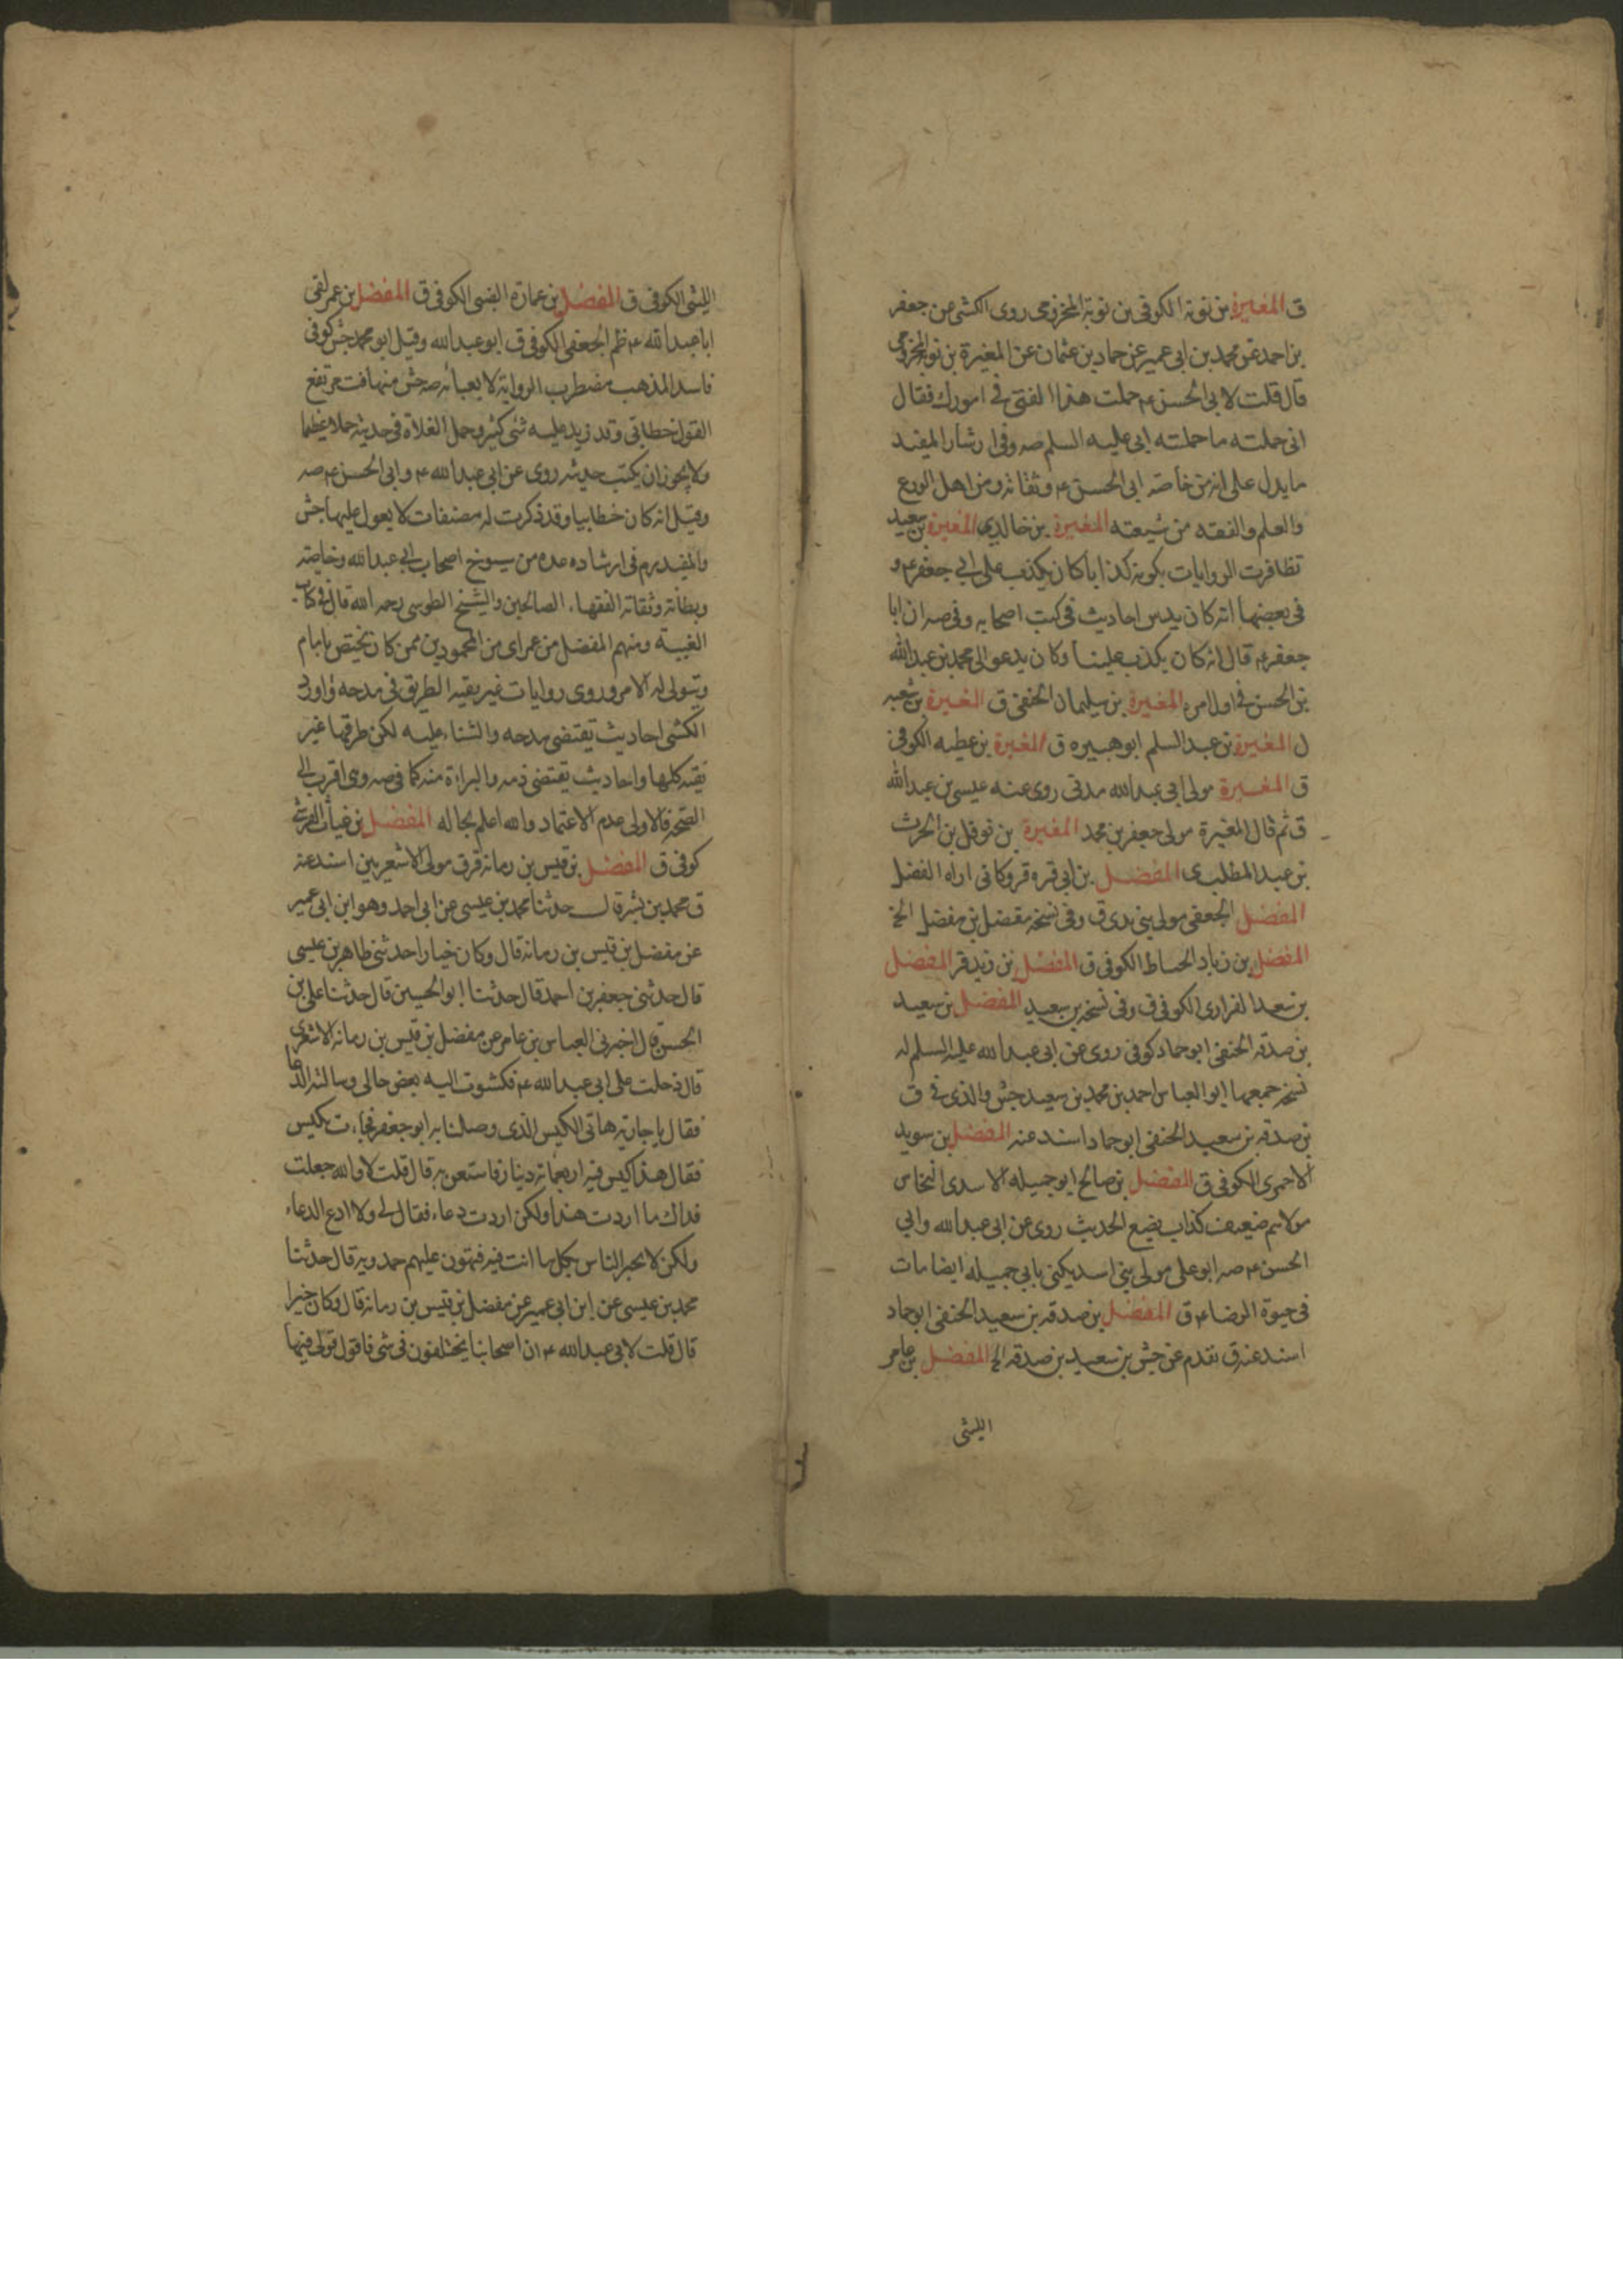 ق المغيرة بن توبة الكوفي بن توبة المخزومي روى الكشي عن جعفر
بن احمد عن محمد بن ابي عمير عن حماد بن عثمان عن المغيرة بن توبة المخزومي
قال قلت لابي الحسن ع حملت هذا الفتى في امورك فقال
اني حملته ما حملنيه ابي عليه السلم صه وفي ارشاد المفيد
ما يدل على انه من خاصة ابي الحسن ع وثقاته ومن اهل الورع
والعلم والفقه من شيعته المغيرة بن خالد المغيرة بن سعيد
تظافرت الروايات بكونه كذابا كان يكذب على ابي جعفر ع و
في بعضها انه كان يدس احاديث في كتب اصحابه وفي صه ان ابا
جعفر ع قال انه كان يكذب علينا وكان يدعو الى محمد بن عبد الله
بن الحسن في اول امره المغيرة بن سليمان الحنفي ق المغيرة بن شعبه
ل المغيرة بن عبد السلم ابو هبيره ق المغيرة بن عطيه الكوفي
ق المغيرة مولى ابي عبد الله مدني روى عنه عيسى بن عبد الله
ق ثم قال المغيرة مولى جعفر بن محمد المغيرة بن نوفل بن الحرث
بن عبد المطلب ى المفضل بن ابي قره قر وكاني اراه الفضل
المفضل الجعفي مولى بني بدي ق وفي نسخه مفضل بن مفضل الخ
المفضل بن زياد الحساط الكوفي ق المفضل بن زيد قر المفضل
بن سعد الفزاري الكوفي ق وفي نسخه بن سعيد المفضل بن سعيد
بن صدقه الحنفي ابو حماد كوفي روى عن ابي عبد الله عليه السلم له
نسخه جمعها ابو العباس احمد بن محمد بن سعيد جش والذي في ق
بن صدقه بن سعيد الحنفي ابو حماد اسند عنه المفضل بن سويد
الاحمري الكوفي ق المفضل بن صالح ابو جميله الاسدي النخاس
مولاهم ضعيف كذاب يضع الحديث روى عن ابي عبد الله وابي
الحسن ع صه ابو علي مولى بني اسد يكنى بابي جميله ايضا مات
في حيوة الرضا ع ق المفضل بن صدقه بن سعيد الحنفي ابو حماد
اسند عنه ق تقدم عن جش بن سعيد بن صدقه الخ المفضل بن عامر
الليثي
الليثي الكوفي ق المفضل بن عمارة الضبي الكوفي ق المفضل بن عمر لقى
ابا عبد الله ع ظم الجعفي الكوفي ق ابو عبد الله وقيل ابو محمد جش كوفي
فاسد المذهب مضطرب الرواية لا يعبأ به صه جش متهافت مرتفع
القول خطابي وقد زيد عليه شي كثير وحمل الغلاة في حديثه حملا عظيما
ولا يجوز ان يكتب حديثه روى عن ابي عبد الله ع وابي الحسن ع صه
وقيل انه كان خطابيا وقد ذكرت له مصنفات لا يعول عليها جش
والمفيد ره في ارشاده عده من شيوخ اصحاب ابي عبد الله وخاصته
وبطانته وثقاته الفقهاء الصالحين والشيخ الطوسي رحمه الله قال في كتاب
الغيبه ومنهم المفضل بن عمر اى من المحمودين ممن كان يختص بامام
ويتولى له الامر وروى روايات غير نقيه الطريق في مدحه واورد
الكشي احاديث تقتضي مدحه والثناء عليه لكن طرقها غير
نقيه كلها واحاديث يقتضي ذمه والبراءة منه كما في صه وى اقرب الى
الصحة فالاولى عدم الاعتماد والله اعلم بحاله المفضل بن غياث القرشي
كوفي ق المفضل بن قيس بن رمانه قر ق مولى الاشعريين اسند عنه
ق محمد بن بشر قال حدثنا محمد بن عيسى عن ابي احمد وهو ابن ابي عمير
عن مفضل بن قيس بن رمانه قال وكان خيارا حدثني طاهر بن عيسى
قال حدثني جعفر بن احمد قال حدثنا ابو الحسين قال حدثنا علي بن
الحسن قال اخبرني العباس بن عامر عن مفضل بن قيس بن رمانه الاشعري
قال دخلت على ابي عبد الله ع فشكوت اليه بعض حالي وسالته الدعا
فقال يا جارية هاتي الكيس الذي وصلنا به ابو جعفر فجاءت بكيس
فقال هذا كيس فيه اربعمائه دينار فاستعن به قال قلت لا والله جعلت
فداك ما اردت هذا ولكن اردت دعاء فقال لي ولا ادع الدعاء
ولكن لا تخبر الناس بكل ما انت فيه فتهون عليهم حمدويه قال حدثنا
محمد بن عيسى عن ابن ابي عمير عن مفضل بن قيس بن رمانه قال وكان خيرا
قال قلت لابي عبد الله ع ان اصحابنا يختلفون في شي فاقول قولى فيها